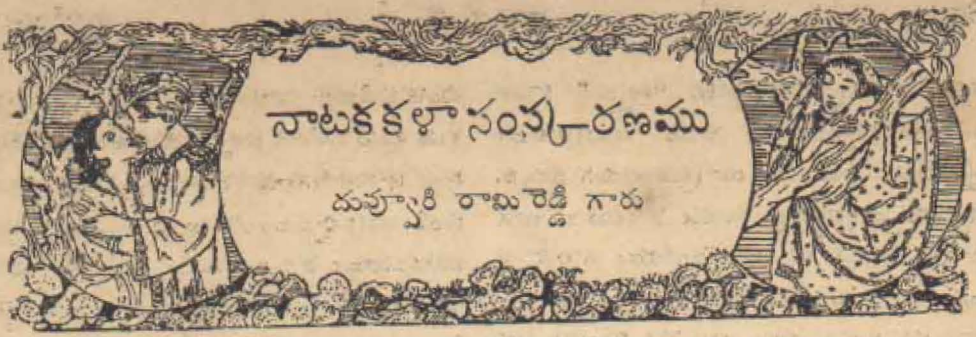 నాటకకళా సంస్కరణము
దువ్వూరి రామిరెడ్డి గారు